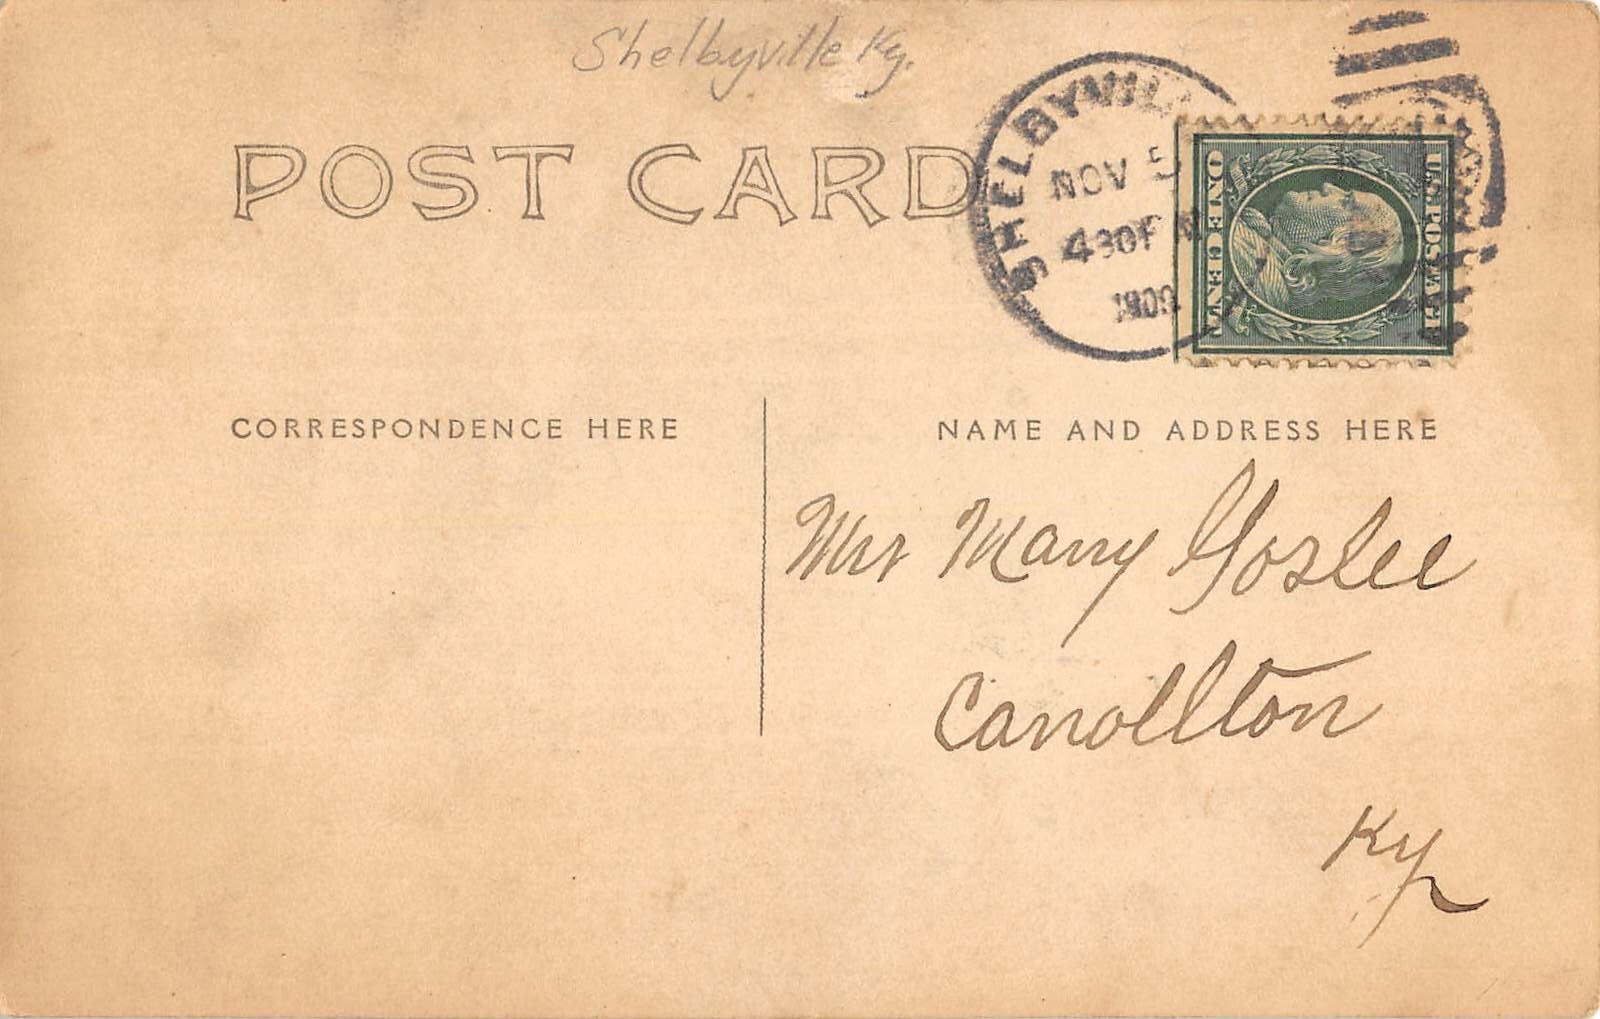 Shelbyville Ky.
POST CARD
SHELBYVILL
NOV 5
430P M
ONE CENT
U.S. POSTAGE
CORRESPONDENCE HERE
NAME AND ADDRESS HERE
Mrs Mary Goslee
Carrollton
Ky